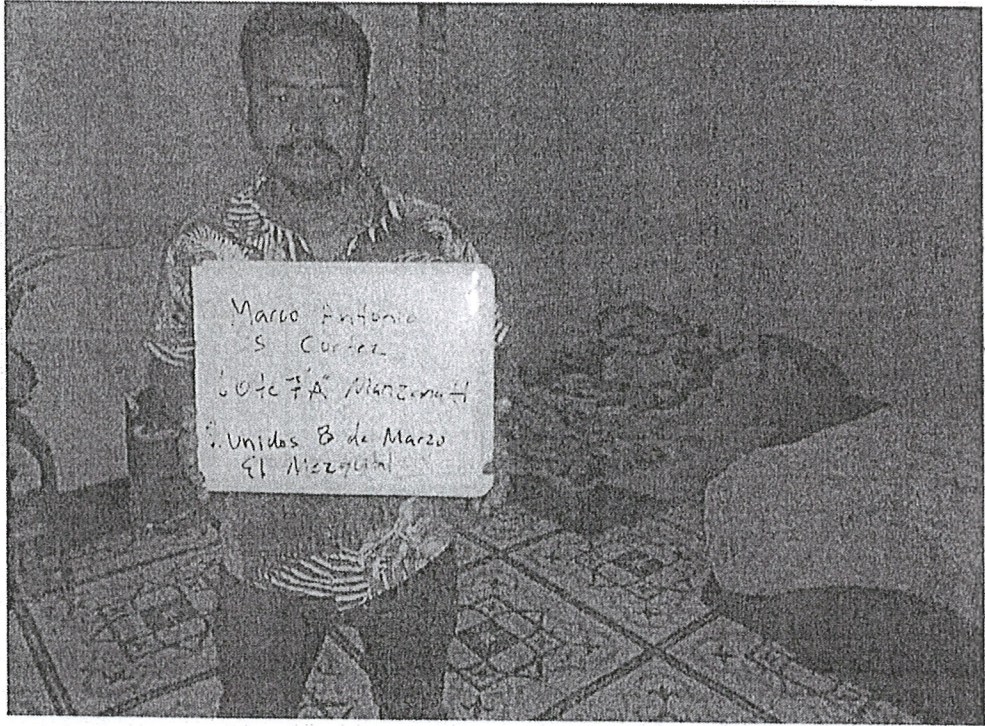 Marco Antonio
S Cortez
Lote 7 "A" Manzana H
Unidos 8 de Marzo
El Mezquital